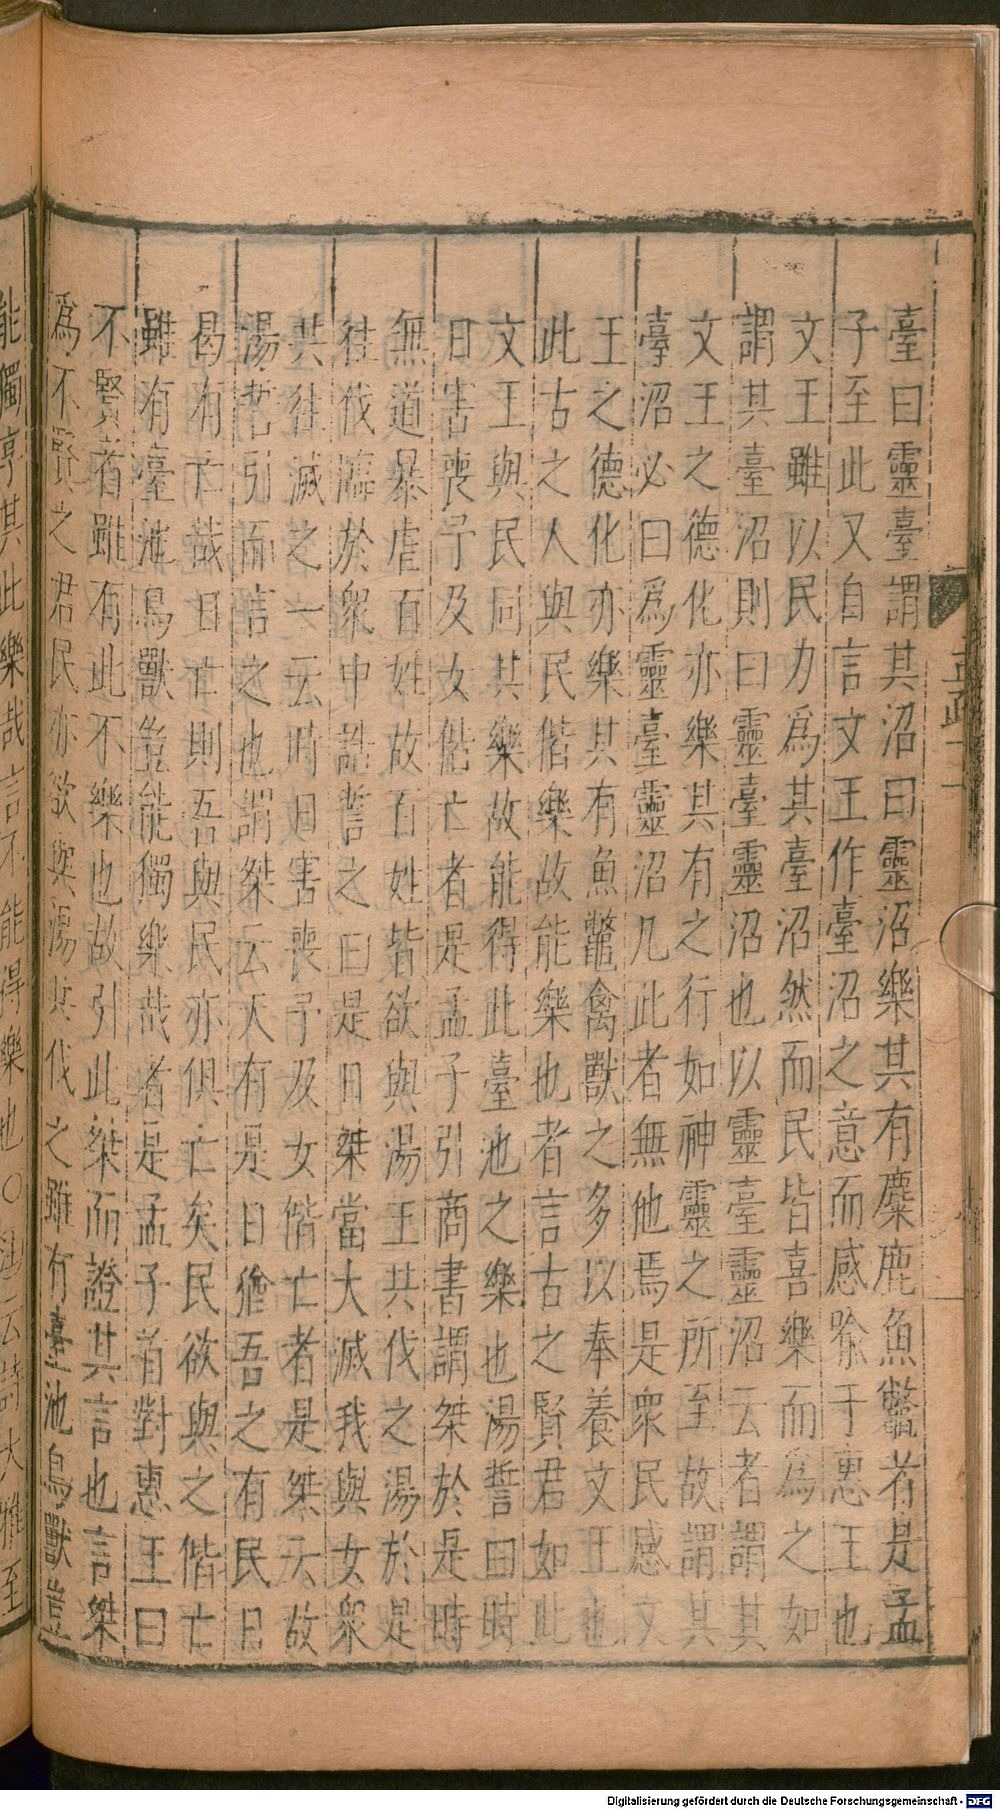 臺曰靈臺謂其沼曰靈沼樂其有麋鹿魚鼈者是孟
子至此又自言文王作臺沼之意而感喻于惠王也
文王雖以民力為其臺沼然而民皆喜樂而為之如
謂其臺沼則曰靈臺靈沼也以靈臺靈沼云者謂其
文王之德化亦樂其有之行如神靈之所至故謂其
臺沼必曰為靈臺靈沼凡此者無他焉是衆民感文
王之德化亦樂其有魚鼈禽獸之多以奉養文王也
此古之人與民偕樂故能樂也者言古之賢君如此
文王與民同其樂故能得此臺池之樂也湯誓曰時
日害喪予及女偕亡者是孟子引商書謂桀於是時
無道暴虐百姓故百姓皆欲與湯王共伐之湯於是
往伐䢴於衆中誥誓之曰是日桀當大滅我與女衆
共往滅之一云時日害喪予及女偕亡者是桀云故
湯誓引而言之也謂桀云天有是日猶吾之有民日
曷有亡哉日亡則吾與民亦俱亡矣民欲與之偕亡
雖有臺池鳥獸豈能獨樂哉者是孟子首對惠王曰
不賢者雖有此不樂也故引此桀而證其言也言桀
為不賢之君民亦欲與湯共伐之雖有臺池鳥獸豈
能獨享其此樂哉言不能得樂也○注云詩大雅至
Digitalisierung gefördert durch die Deutsche Forschungsgemeinschaft - DFG